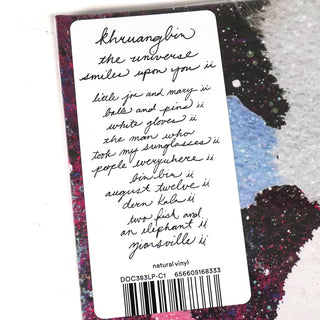 khruangbin
the universe
smiles upon you ii
little joe and mary ii
balls and pins ii
white gloves ii
the man who
took my sunglasses ii
people everywhere ii
bin bin ii
august twelve ii
dern kala ii
two fish and
an elephant ii
zionsville ii
natural vinyl
DOC383LP-C1 656605168333